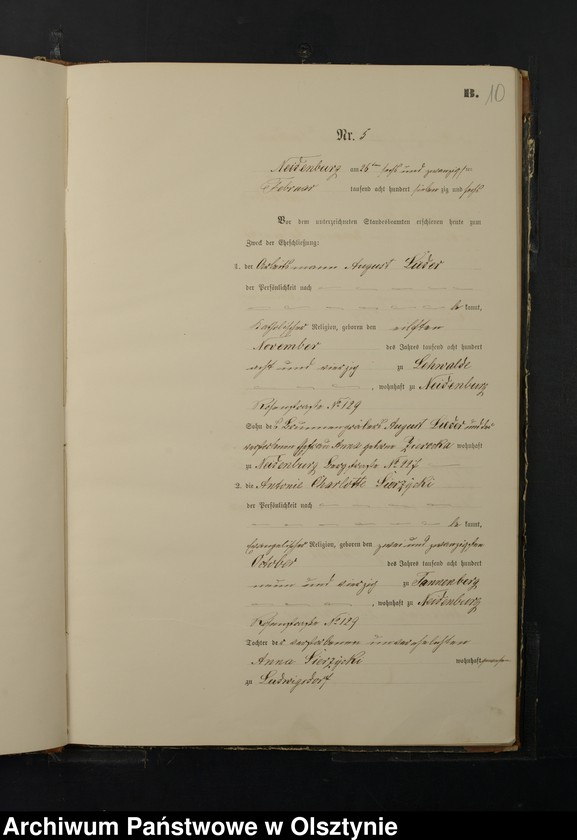 B. 10
Nr. 5
Neidenburg am 26ten sechs und zwanzigsten
Februar tausend acht hundert siebenzig und sechs
Vor dem unterzeichneten Standesbeamten erschienen heute zum
Zweck der Eheschließung:
1. der Arbeitsmann August Lieder
der Persönlichkeit nach
be kannt,
katholischer Religion, geboren den elften
November des Jahres tausend acht hundert
acht und vierzig zu Lehwalde
, wohnhaft zu Neidenburg
Rosengstraße No 129
Sohn des Brunnengräbers August Lieder und der
verstorbenen Ehefrau Anna geborene wohnhaft
zu Neidenburg Bergstraße No 227
2. die Antonie Charlotte Sierzycki
der Persönlichkeit nach
be kannt,
evangelischer Religion, geboren den zwei und zwanzigsten
October des Jahres tausend acht hundert
neun und vierzig zu Tannenberg
, wohnhaft zu Neidenburg
Rosengstraße No 129
Tochter der verstorbenen unverehelichten
Anna Sierzycki wohnhaft gewesen
zu Ludwigsdorf
Archiwum Państwowe w Olsztynie